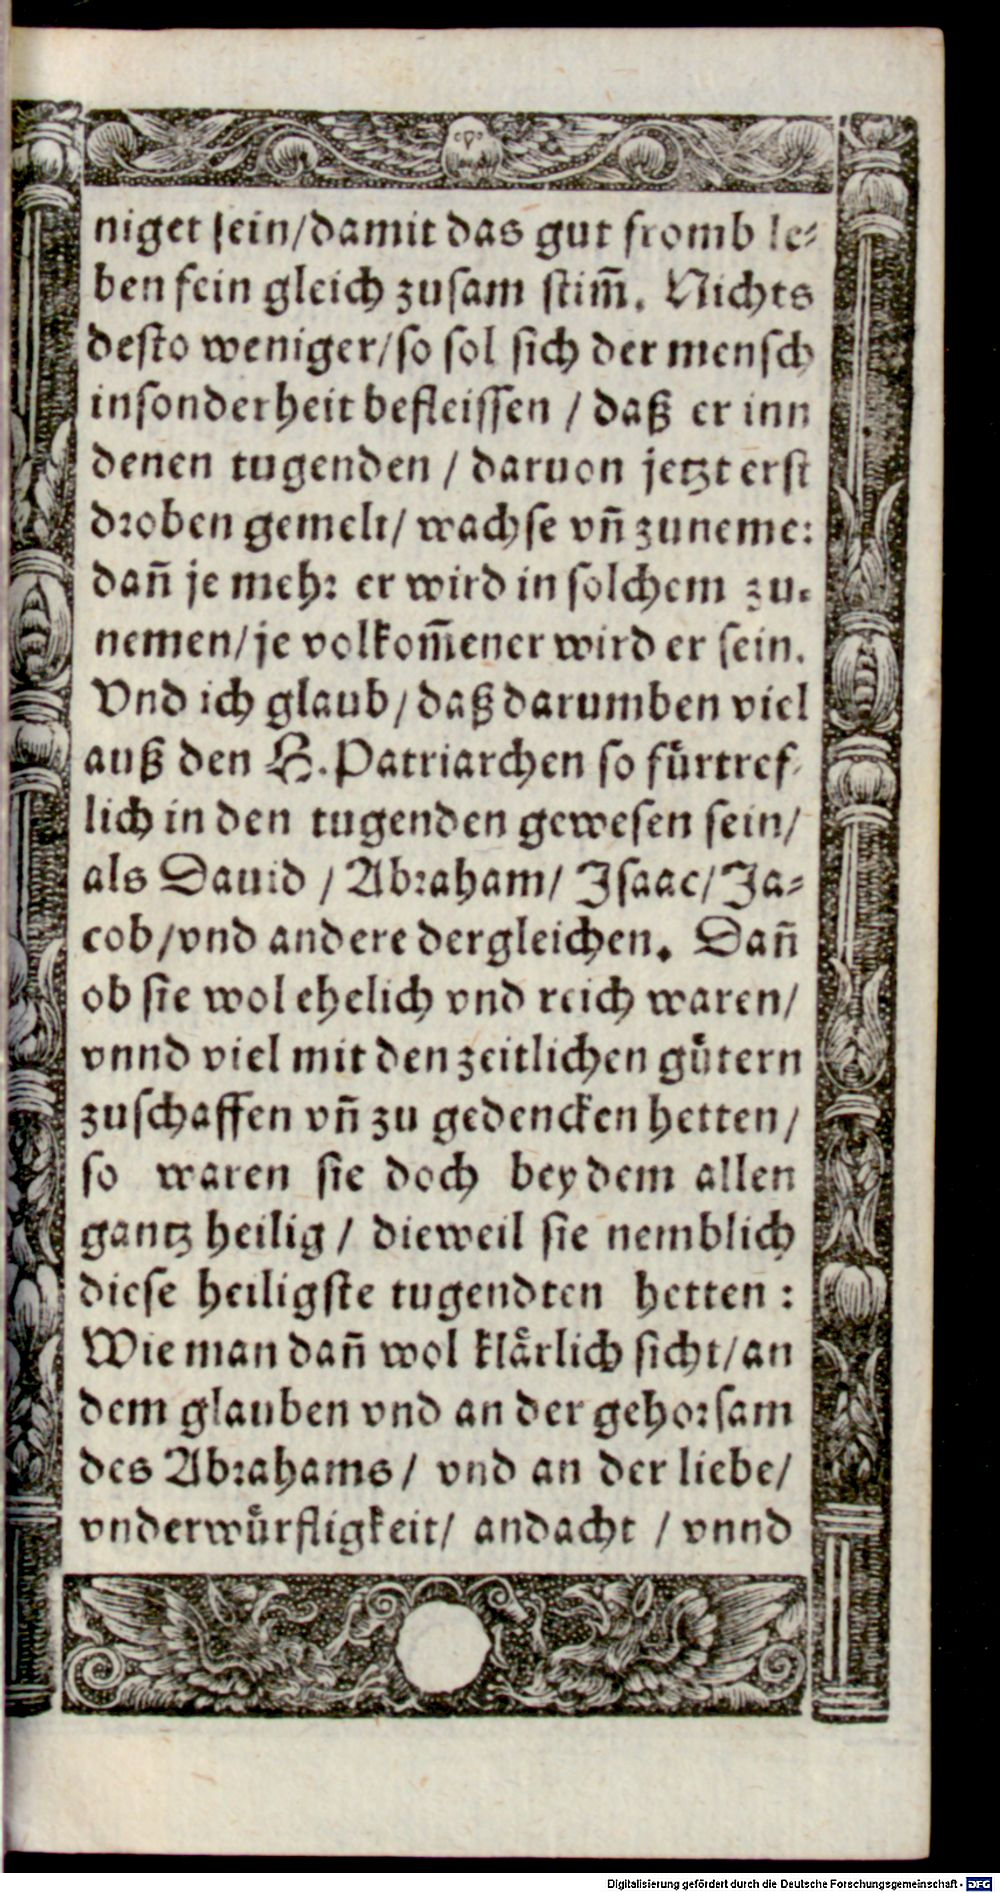 niget sein/damit das gut fromb le⸗
ben fein gleich zusam stim̃. Nichts
desto weniger/so sol sich der mensch
insonderheit befleissen / daß er inn
denen tugenden / daruon jetzt erst
droben gemelt/ wachse vñ zuneme:
dañ je mehr er wird in solchem zu⸗
nemen/je volkom̃ener wird er sein.
Vnd ich glaub/daß darumben viel
auß den H. Patriarchen so fuͤrtref⸗
lich in den tugenden gewesen sein/
als Dauid / Abraham/ Isaac/Ja⸗
cob/vnd andere dergleichen. Dañ
ob sie wol ehelich vnd reich waren/
vnnd viel mit den zeitlichen guͤtern
zuschaffen vñ zu gedencken hetten/
so waren sie doch bey dem allen
gantz heilig / dieweil sie nemblich
diese heiligste tugendten hetten :
Wie man dañ wol klaͤrlich sicht/an
dem glauben vnd an der gehorsam
des Abrahams / vnd an der liebe/
vnderwuͤrffligkeit/ andacht / vnnd
Digitalisierung gefördert durch die Deutsche Forschungsgemeinschaft - DFG